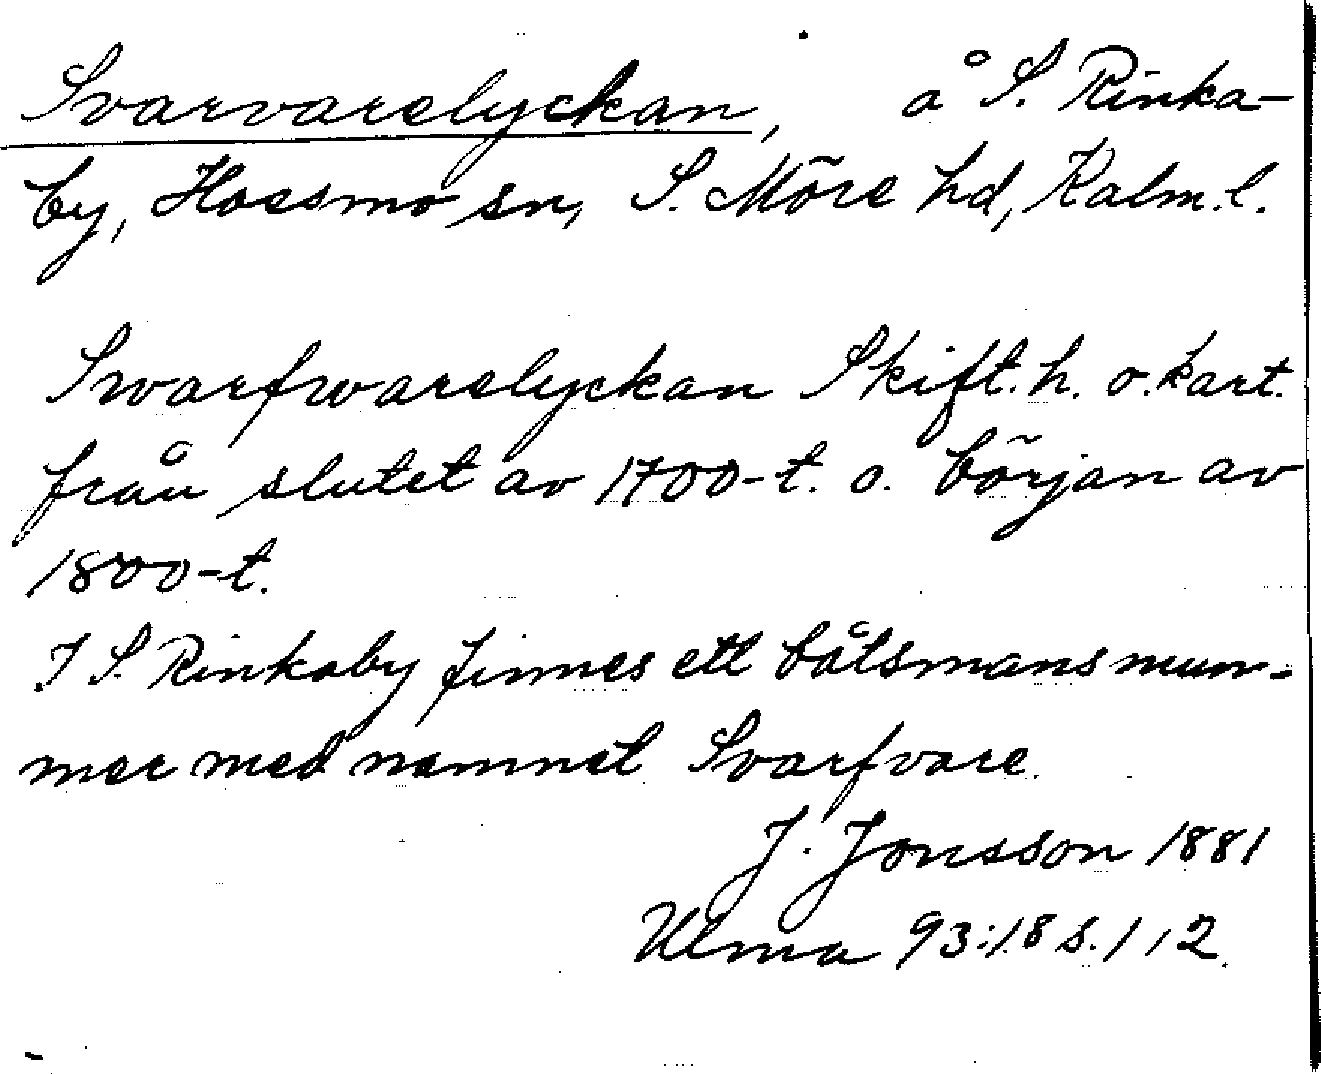 Svarvarelyckan, å S. Rinka-
by, Hossmo sn, S. Möre hd, Kalm. l.
Swarfwarelyckan Skift. h. o. kart.
från slutet av 1700-t. o. början av
1800-t.
I S. Rinkaby finnes ett båtsmansnum-
mer med namnet Svarfvare.
J. Jonsson 1881
Ulma 93:18 s. 1, 2.